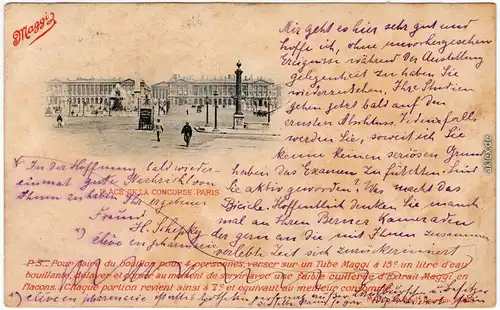 Maggi
Mir geht es hier sehr gut und
hoffe ich, ohne unvorhergesehen
Ereignisse während der Ausstellung
gelegenheit zu haben Sie
wiederzusehen. Ihre Studien
gehen jetzt bald auf den
ernsten Abschluss. Jedenfalls
werden Sie, soweit ich Sie
kenne keinen seriösen Grund
haben das Examen zu fürchten. Sind
Sie aktiv geworden? Was macht das
Bicicle. Hoffentlich denken Sie manch
mal an Ihren Berner Kameraden
der gern an die mit Ihnen zusammen
verlebte Zeit sich zurückerinnert
PLACE DE LA CONCORDE. PARIS
In der Hoffnung bald wieder
einmal gute Nachricht von
Ihnen zu haben Ihr ergebener
Freund
élève en pharmacie
P.S. Pour faire du bouillon pour 4 personnes, verser sur un Tube Maggi à 15c un litre d'eau
bouillante, délayer et ajouter au moment de servir avec une faible cuillerée d'Extrait Maggi en
flacons. Chaque portion revient ainsi à 7c et équivaut au meilleur consommé.
élève en pharmacie